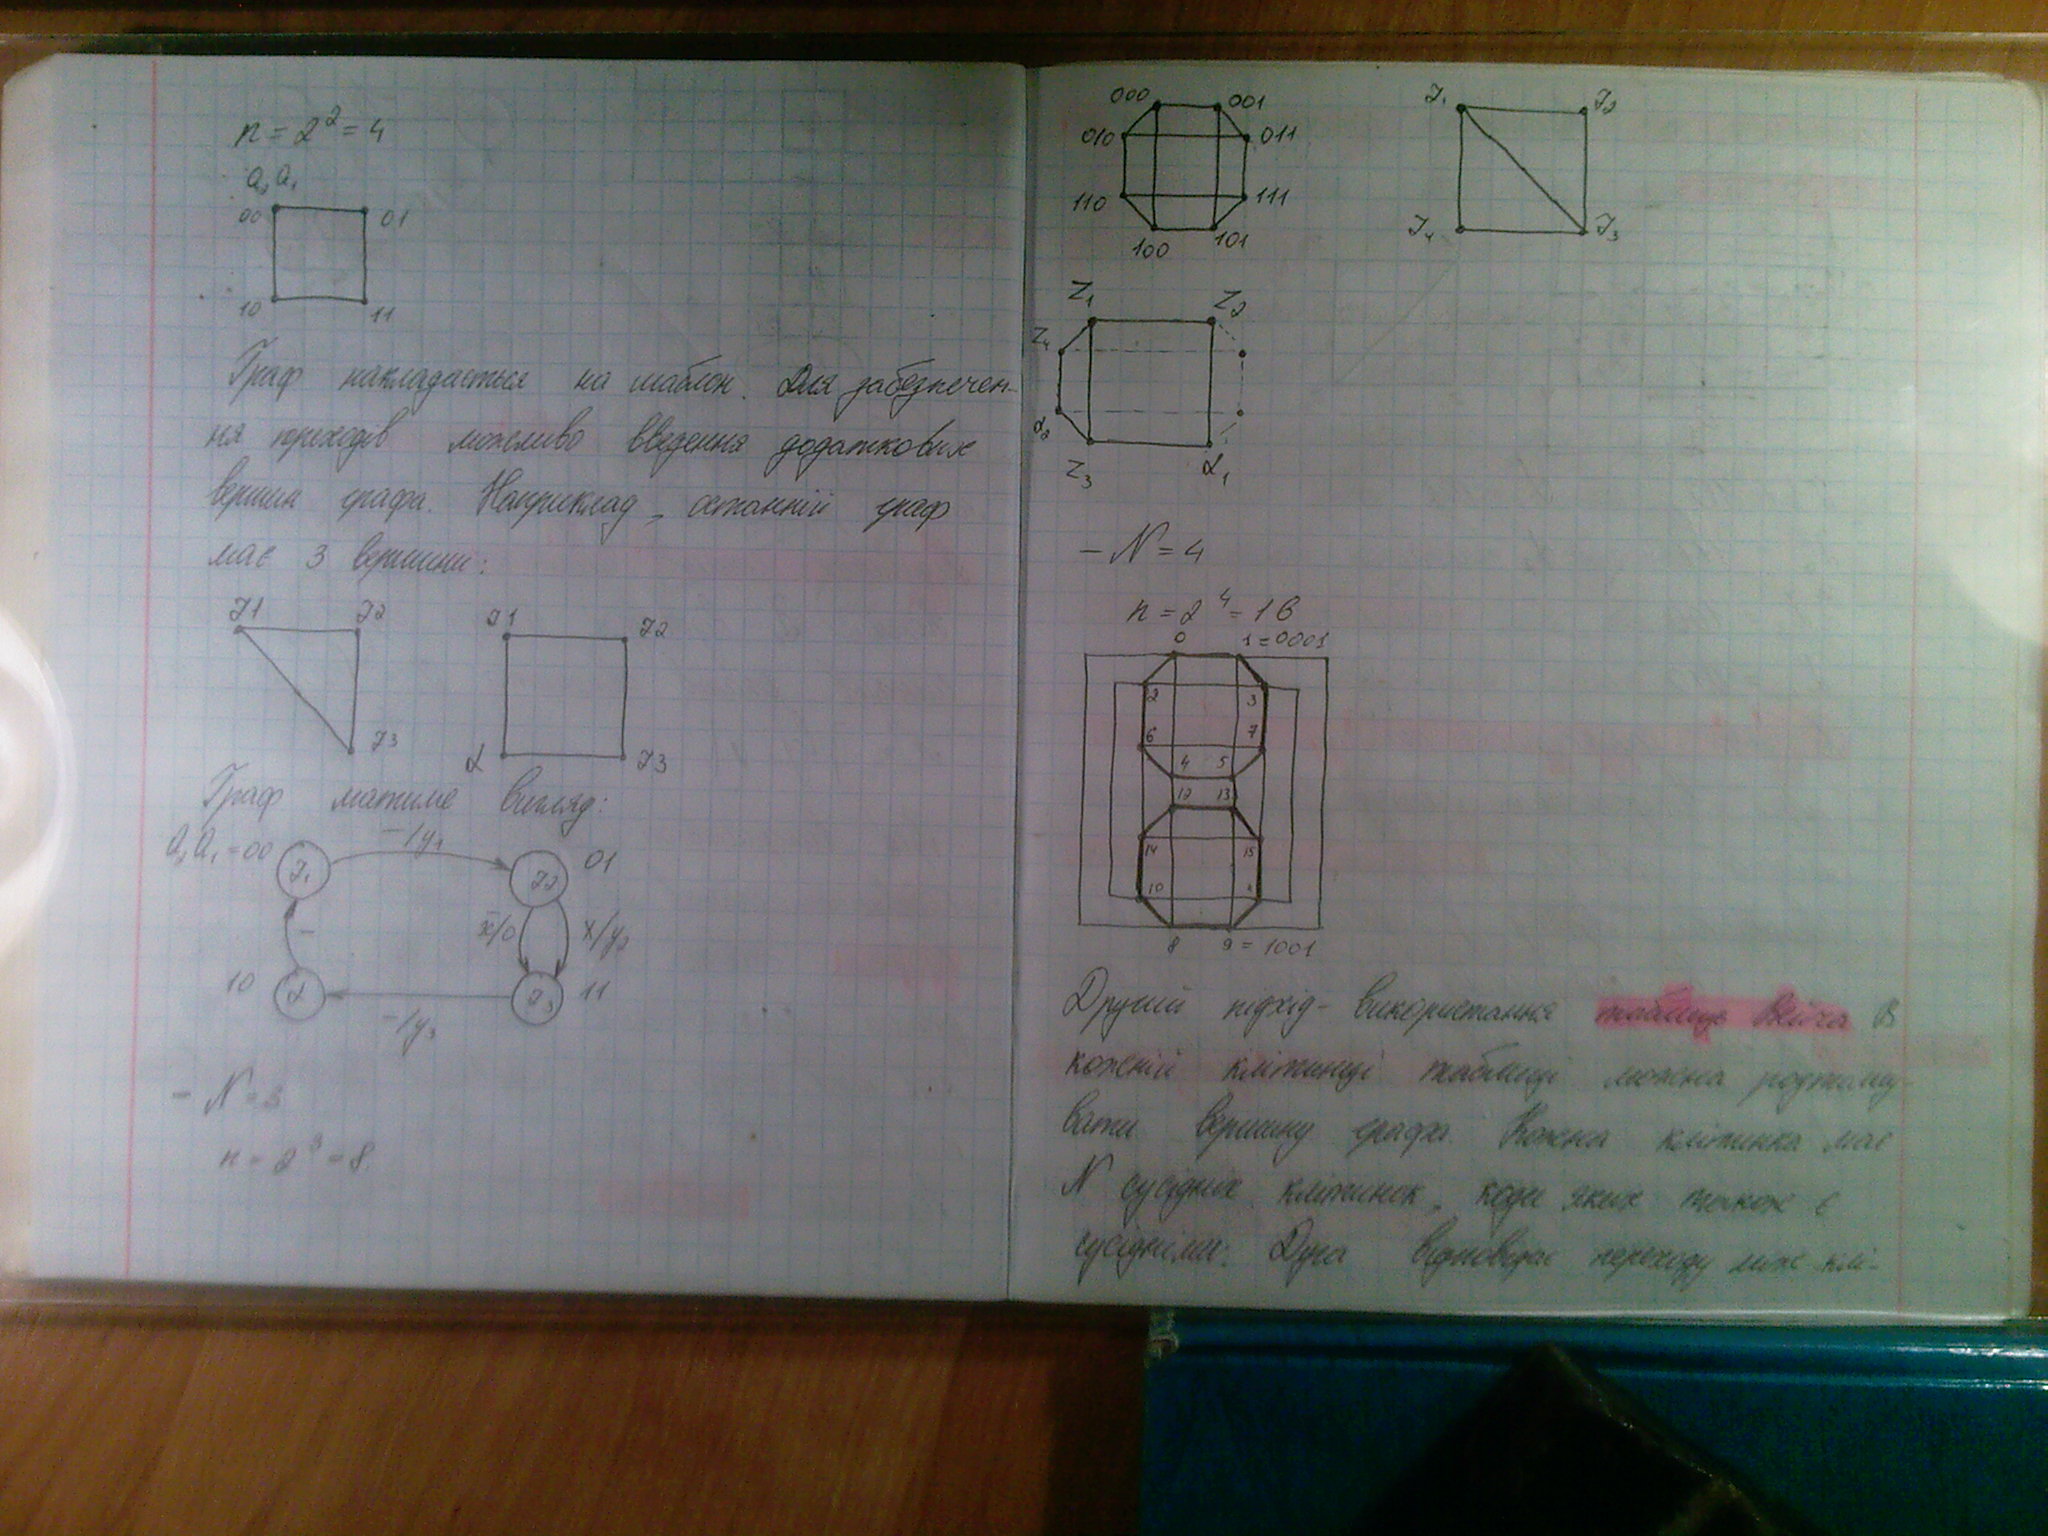 n = 2² = 4
a₂a₁
00 01
10 11
Граф накладається на шаблон. Для забезпечен-
ня преходів можливо введення додаткових
вершин графа. Наприклад, останній граф
має 3 вершини:
Z1 Z2
Z3
Z1 Z2
α Z3
Граф матиме вигляд:
a₂a₁=00 Z₁ -/y₁ Z₂ 01
x̄/0 x/y₂
-
10 α -/y₃ Z₃ 11
- N = 3
n = 2³ = 8
000 001
010 011
110 111
100 101
Z₁ Z₂
Z₄ Z₃
Z₁ Z₂
Z₄
α₂
Z₃ α₁
- N = 4
n = 2⁴ = 16
0 1 = 0001
2 3
6 7
4 5
12 13
14 15
10
8 9 = 1001
Другий підхід - використання таблиць Вейча В
кожній клітинці таблиці можна розташу-
вати вершину графа. Кожна клітинка має
N сусідніх клітинок, коди яких також є
сусідніми. Дуга відповідає переходу між клі-